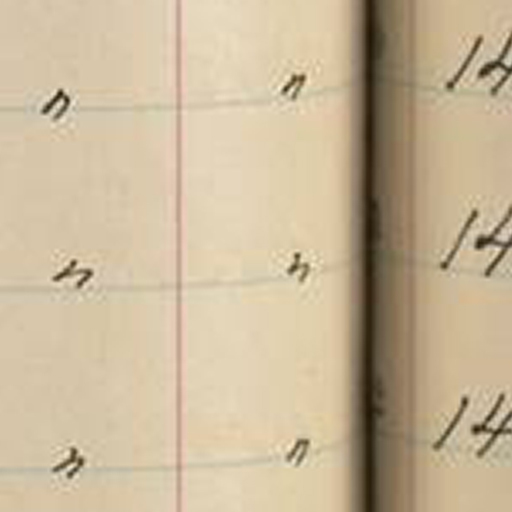 " " 14
" " 14
" " 14